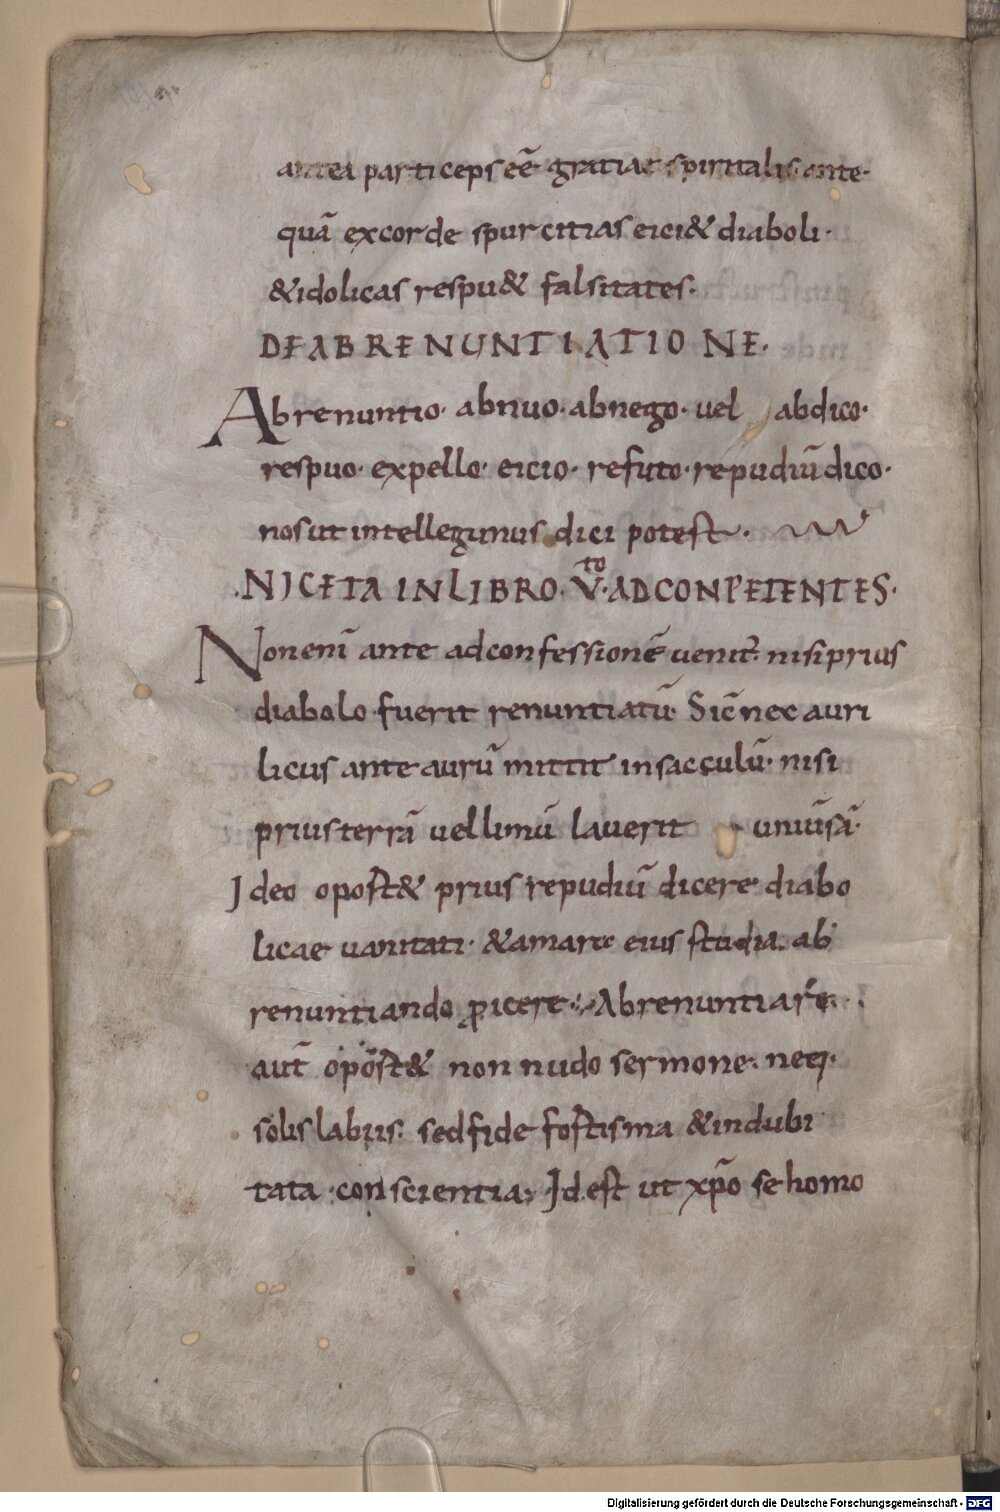 antea particeps eē gratiae spiritalis. ante·
quā excorde spurcitias eici& diaboli·
&idolicas respu& falsitates·
DE ABRENUNTIATIONE·
Abrenuntio· abnuo· abnego· uel abdico·
respuo· expello· eicio· refuto· repudiū dico·
nos ut intellegimus dici potest·
NICETA IN LIBRO· V̄·to AD CONPETENTES·
Non enī ante adconfessionē uenit· nisi prius
diabolo fuerit renuntiatū· Sic̄ nec auri
licus ante aurū mittit insacculū· nisi
prius terrā uel limū lauerit uniūsā·
Ideo oport& prius repudiū dicere diabo
licae uanitati· &amare eius studia. ab
renuntiando ꝓicere· Abrenuntiare·
aut̄ oport& non nudo sermone· neq·
solis labiis· sed fide fortisma &indubi
tata conscientia· Id est ut xp̄o se homo
Digitalisierung gefördert durch die Deutsche Forschungsgemeinschaft - DFG